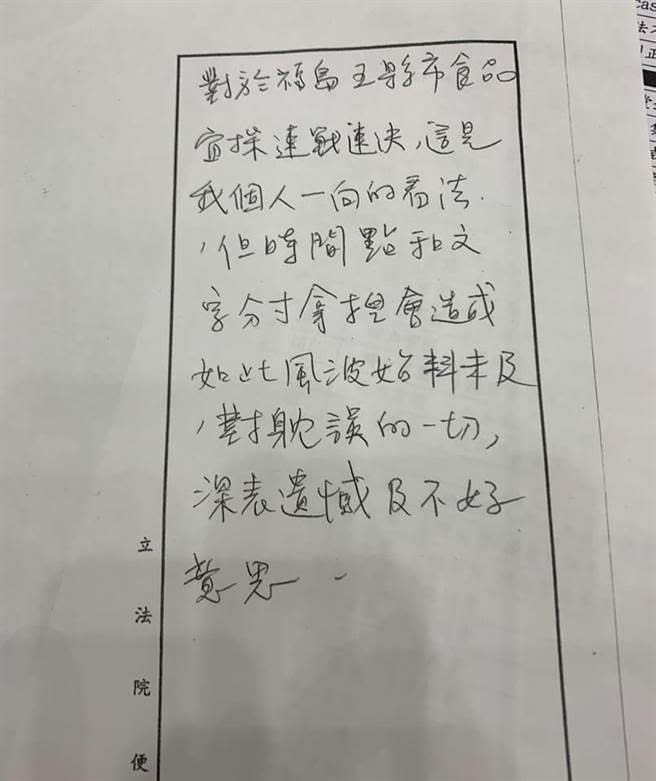 對於福島五縣市食品
宜採速戰速決，這是
我個人一向的看法.
，但時間點和文
字分寸拿捏會造成
如此風波始料未及
，對耽誤的一切，
深表遺憾及不好
意思.
立法院便
法